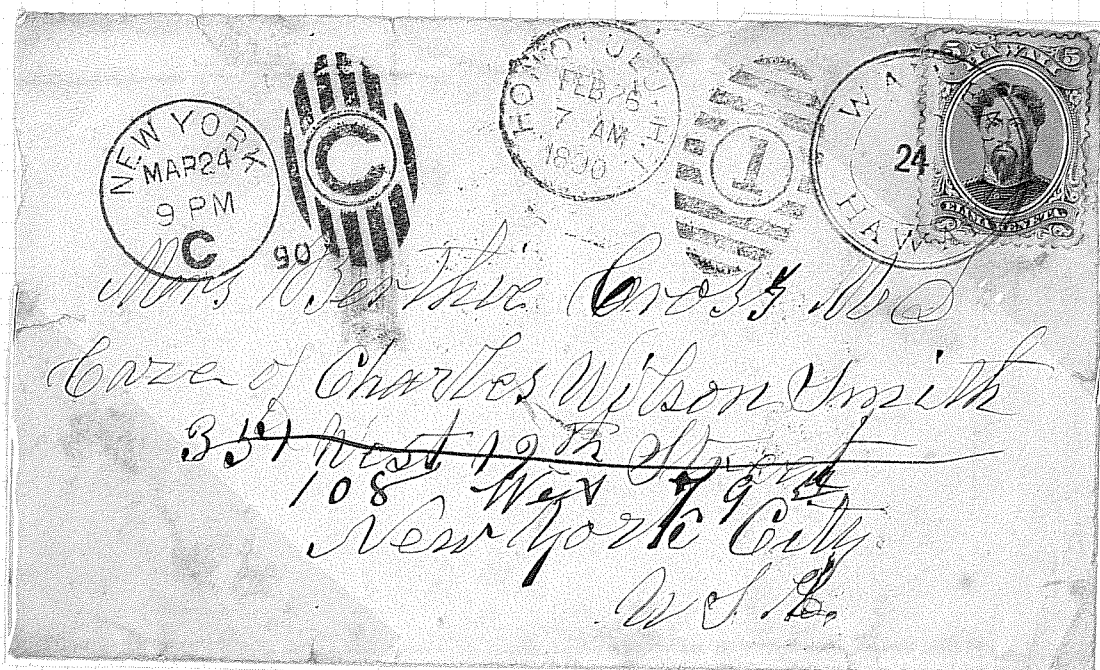 NEW YORK
MAR 24
9 PM
C
90
C
HONOLULU H.I.
FEB 26
7 AM
1890
1
24
HAWAII
5 5
Mrs Berthie Cross
Care of Charles Wilson Smith
351 West 12th Street
108 West 79
New York City.
U. S. A.